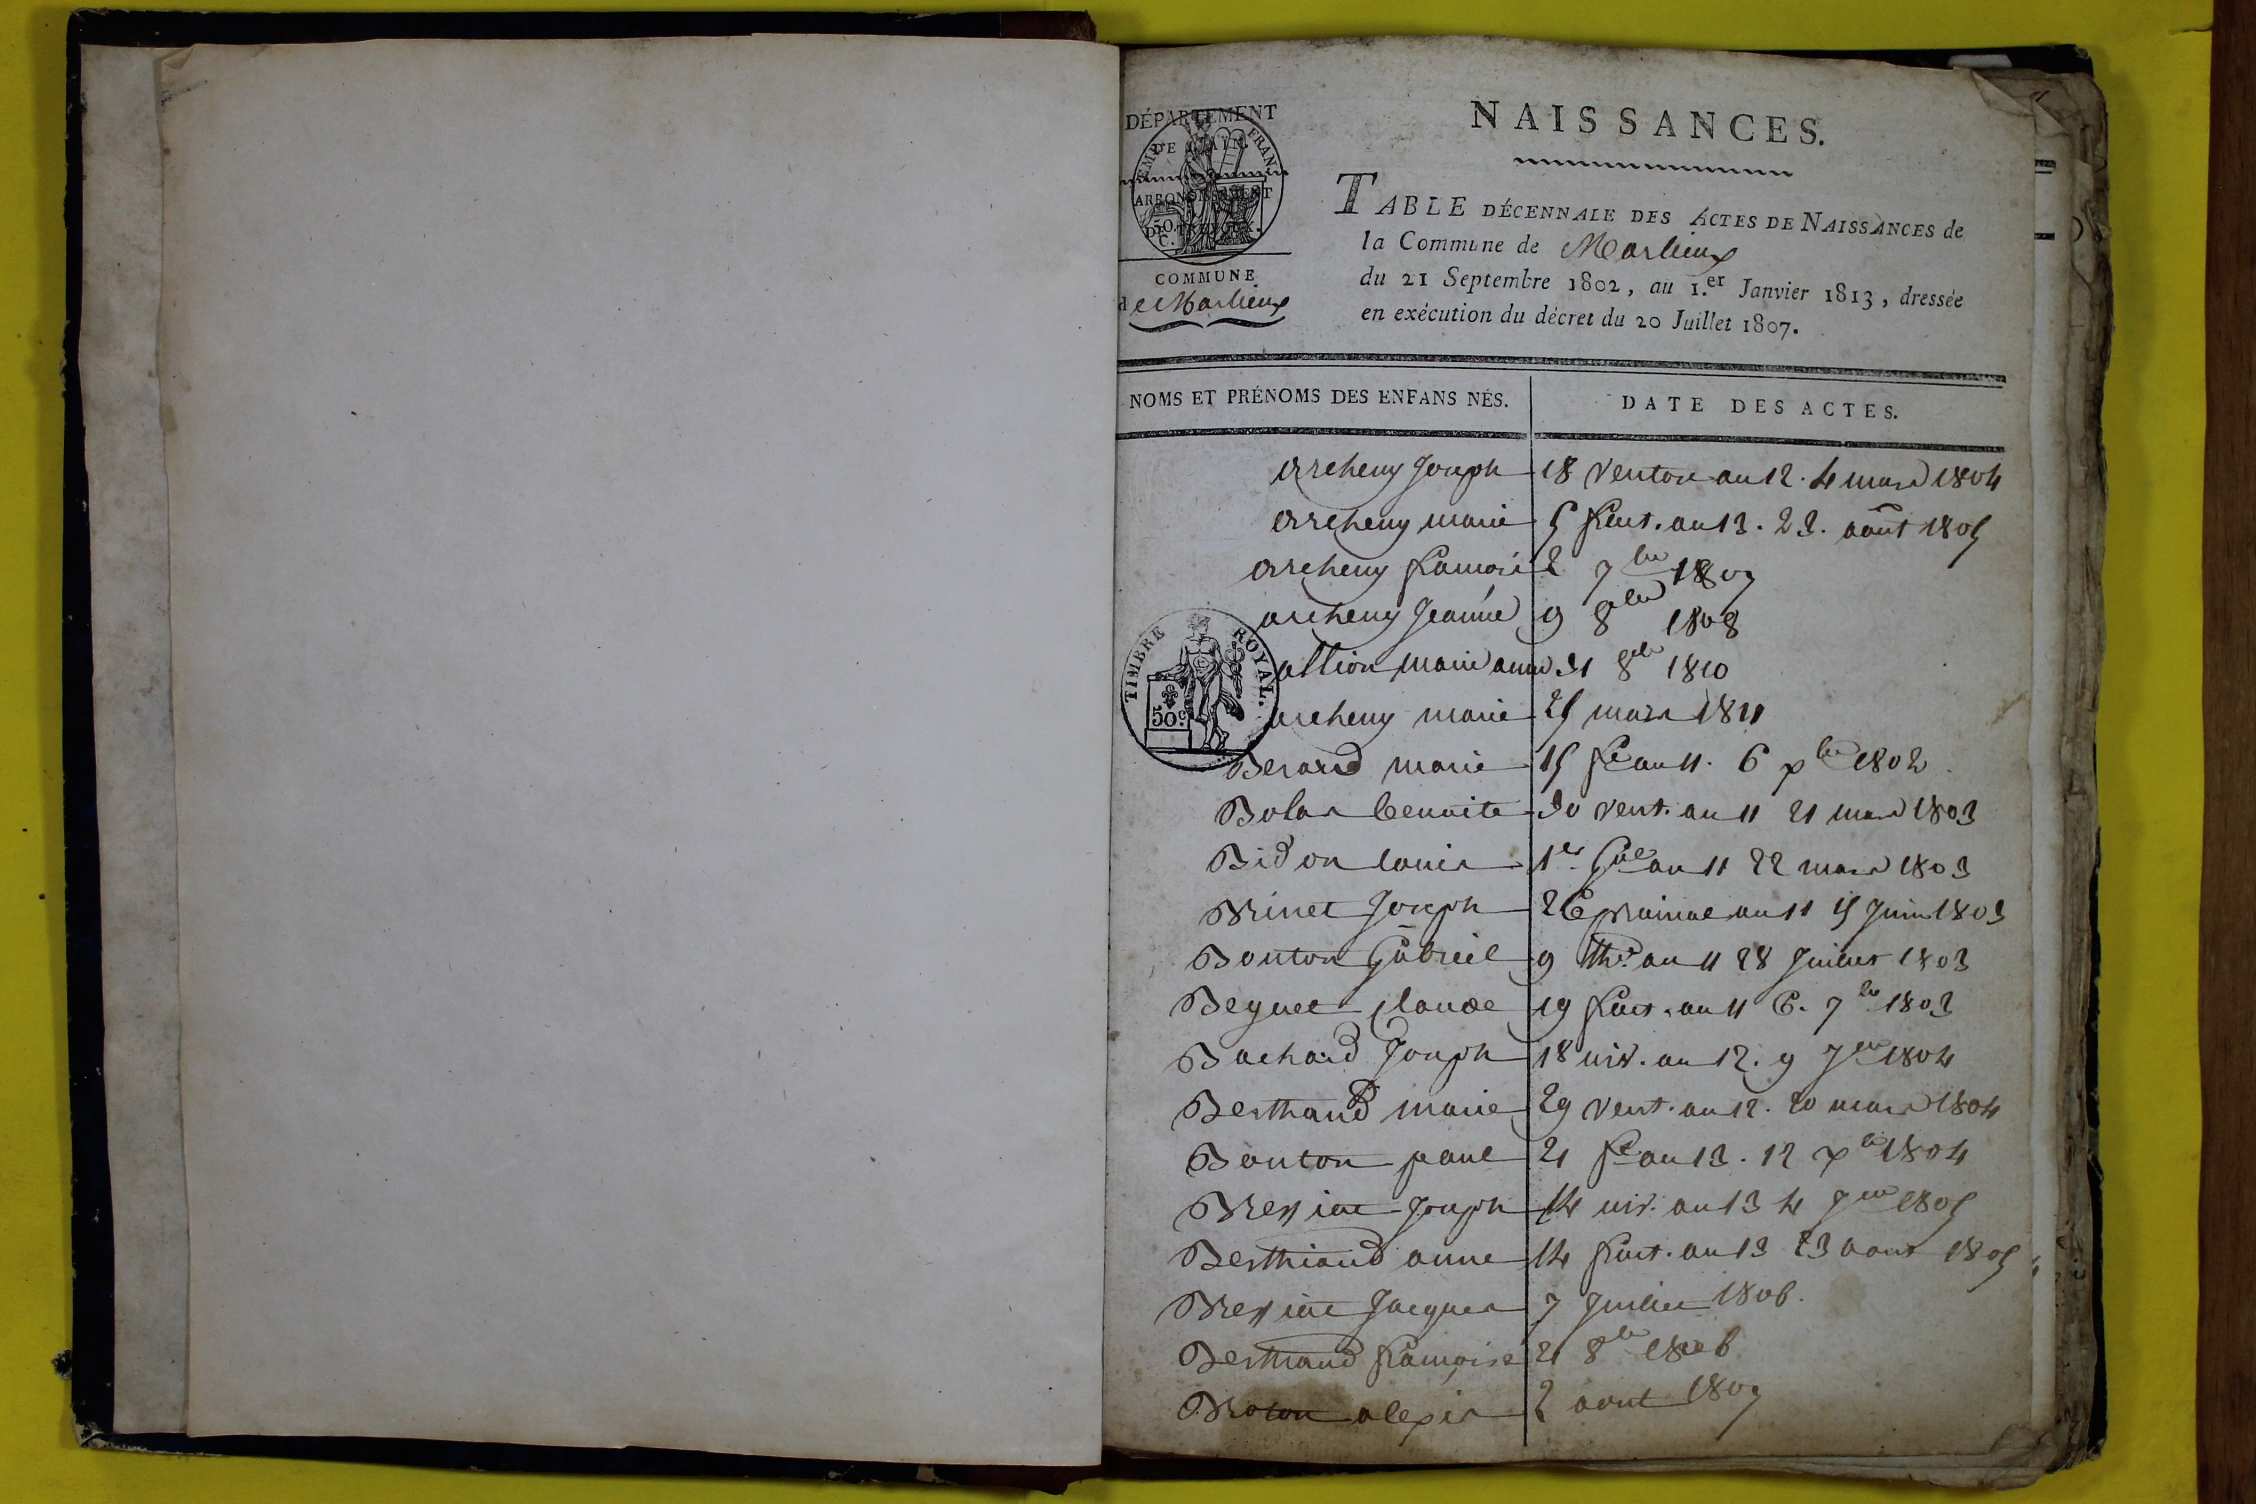 DÉPARTEMENT
DE L'AIN.
ARRONDISSEMENT
DE TRÉVOUX.
COMMUNE
de Marlieux
NAISSANCES.
TABLE DÉCENNALE DES ACTES DE NAISSANCES de
la Commune de Marlieux
du 21 Septembre 1802, au 1.er Janvier 1813, dressée
en exécution du décret du 20 Juillet 1807.
NOMS ET PRÉNOMS DES ENFANS NÉS. DATE DES ACTES.
archeny Joseph 18 ventose an 12. 4 mars 1804
archeny marie 5 fruct. an 13. 23. août 1805
archeny françoise 2 7bre 1807
archeny Jeanne 9 8bre 1808
TIMBRE ROYAL.
50 c
allion marie anne 31 8bre 1810
archeny marie 25 mars 1811
Berard marie 15 fre an 11. 6 xbre 1802
Bolas benoite 30 vent. an 11 21 mars 1803
Bidon louis 1er Gal an 11 22 mars 1803
Brinet Joseph 26 prairial an 11 15 Juin 1803
Bouton Gabriel 9 thr. an 11 28 Juillet 1803
Beguet claude 19 fruct. an 11 6. 7bre 1803
Bachard Joseph 18 niv. an 12. 9 Jer 1804
Berthaud marie 29 vent. an 12. 20 mars 1804
Bouton paul 21 fre an 13. 12 xbre 1804
Bressiat Joseph 14 niv. an 13 4 Jer 1805
Berthiaud anne 14 fruct. an 13 23 aout 1805
Bressiat Jacques 7 Juillet 1806.
Berthaud françoise 21 8bre 1806
alexis 2 aout 1807